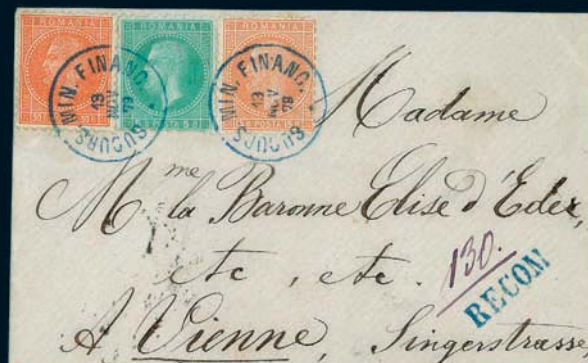 ROMANIA ROMANIA ROMANIA
MIN. FINANC. SUCURS
MIN. FINANC. SUCURS
Madame
Mme la Baronne Elise d'Eder,
etc, etc.
130.
RECOM
A Vienne, Singerstrass